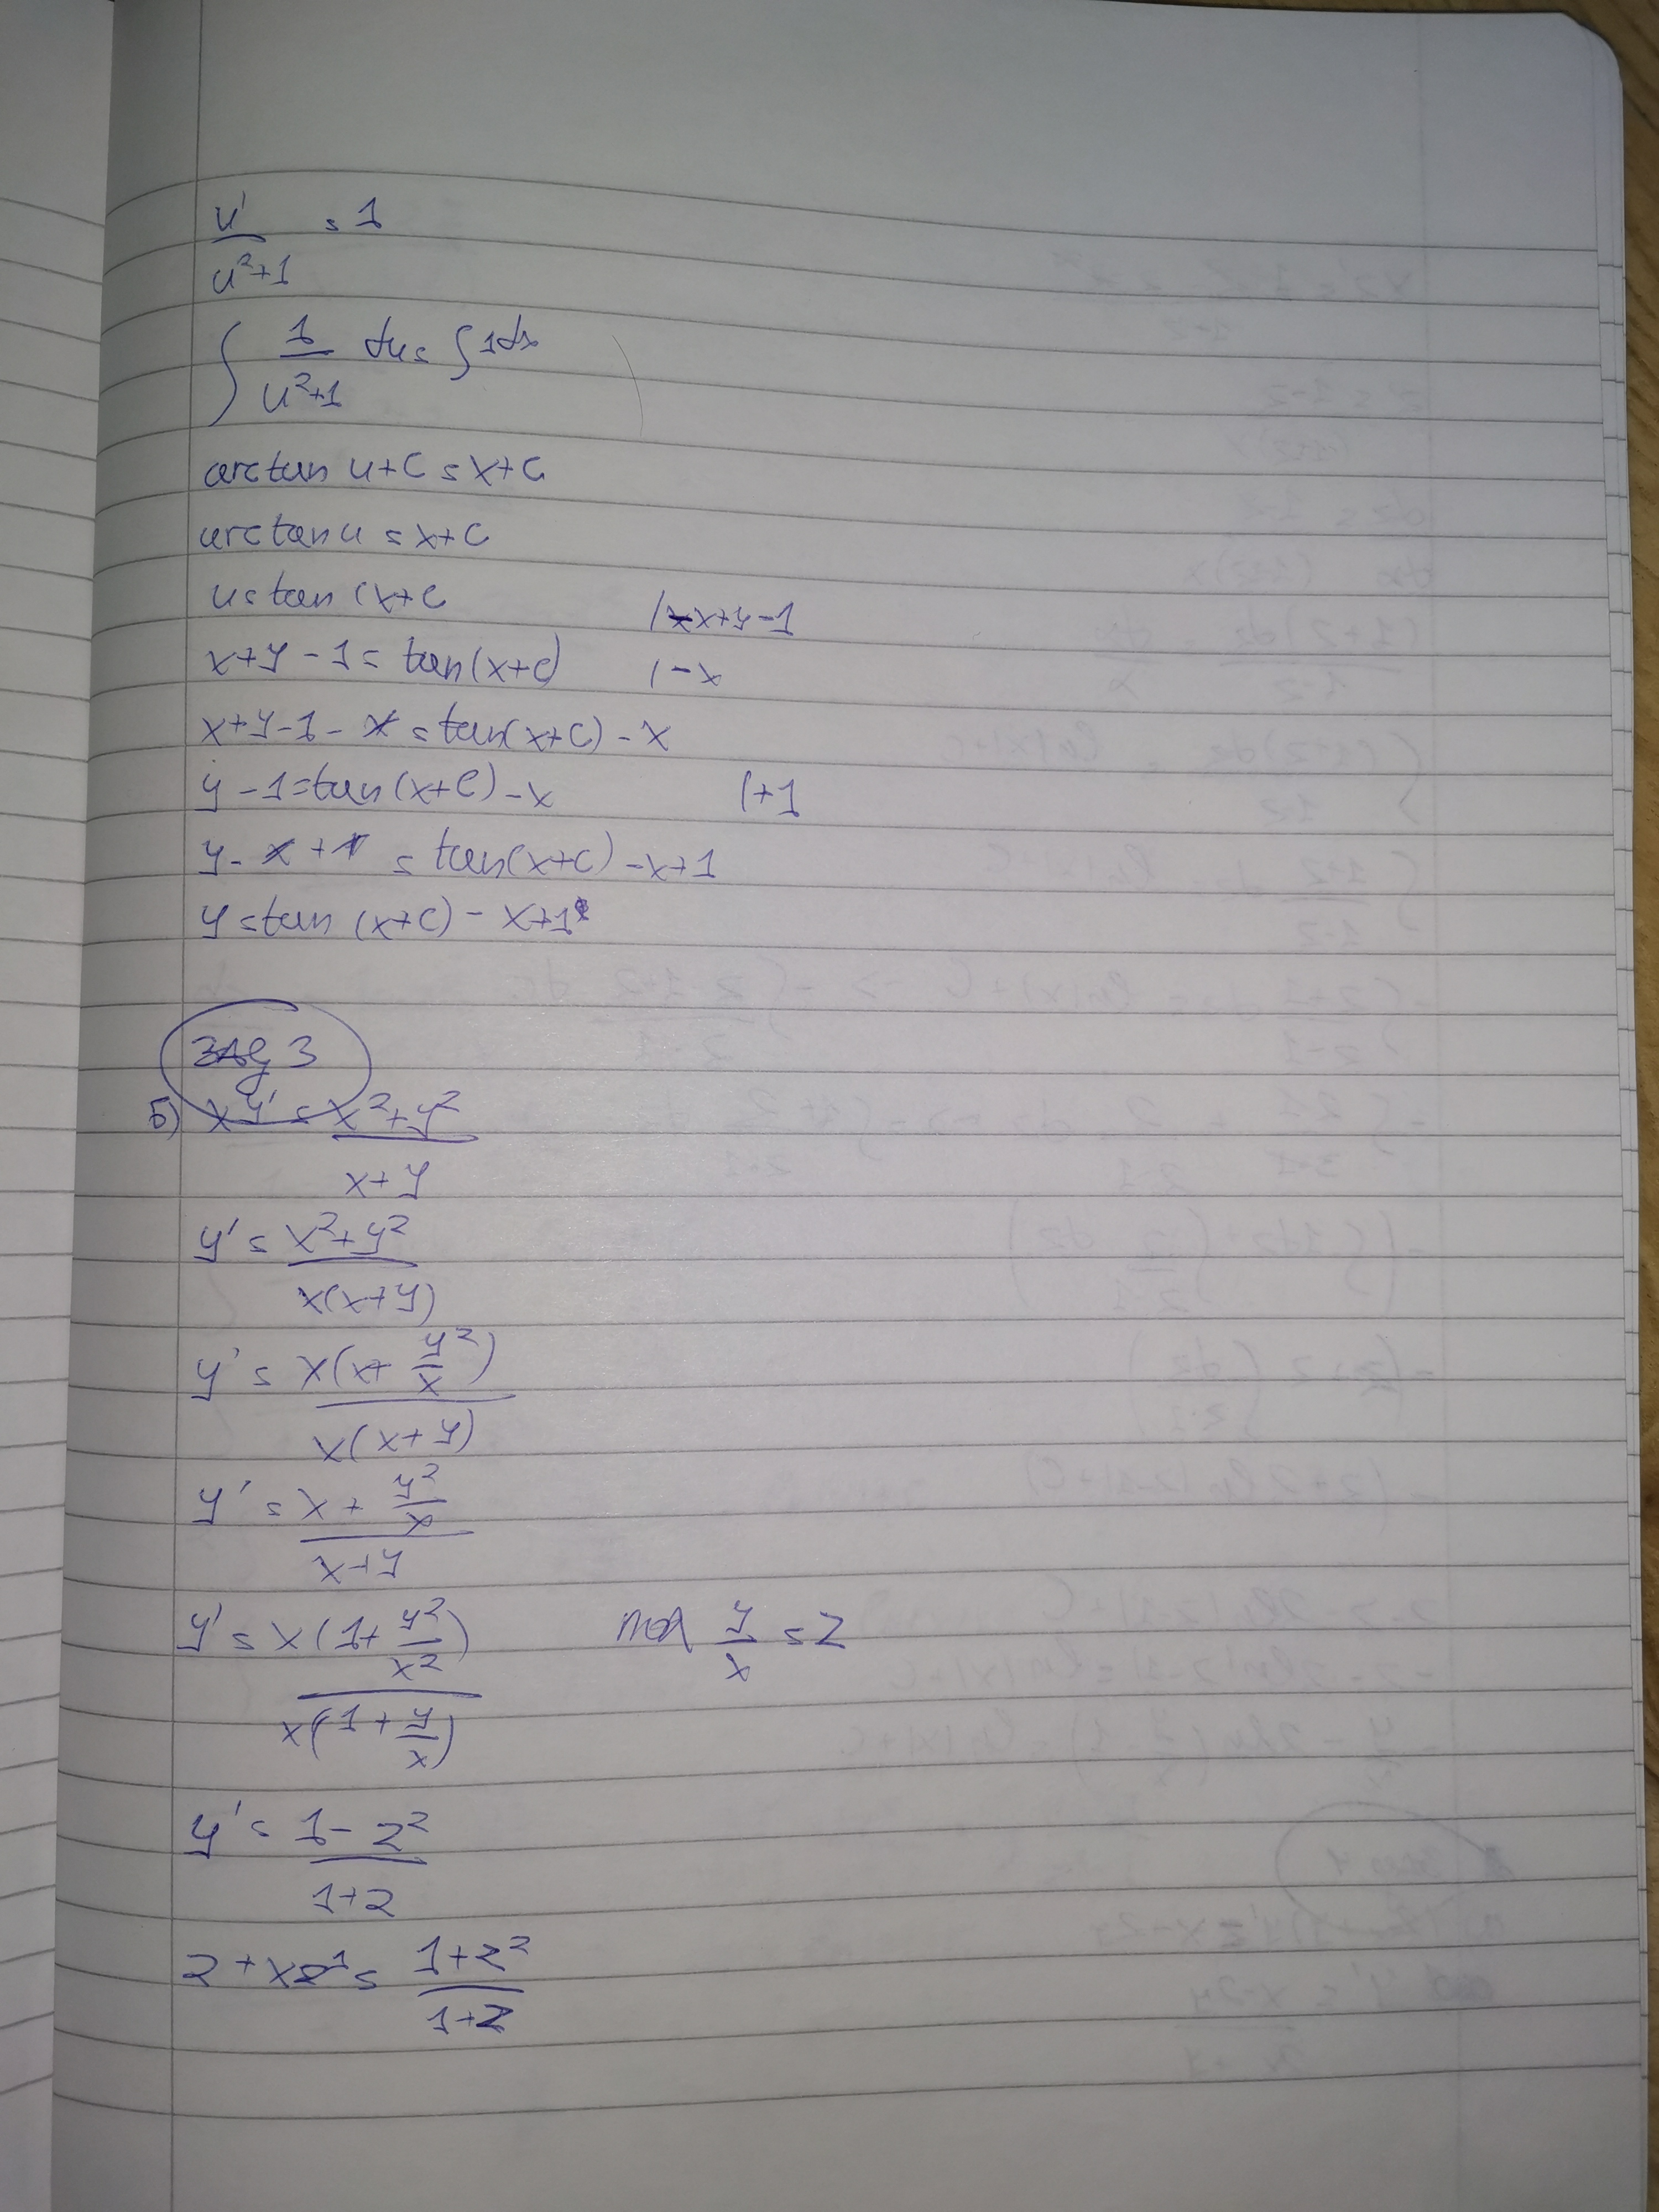 u' / u²+1 = 1
∫ 1 / u²+1 du = ∫ 1dx
arctan u+C = x+C
arctan u = x+C
u = tan (x+C
x+y-1 = tan(x+C) |x+y-1
|-x
x+y-1-x = tan(x+C) - x
y-1 = tan(x+C) - x |+1
y- x + 1 = tan(x+C) -x+1
y = tan (x+C) - x+1
Заg 3
Б) xy' = x²+y² / x+y
y' = x²+y² / x(x+y)
y' = x(x+ y²/x) / x(x+y)
y' = x + y²/x / x+y
y' = x(1+ y²/x²) / x(1+ y/x) пол y/x = z
y' = 1- z² / 1+z
z + xz' = 1+z² / 1+z